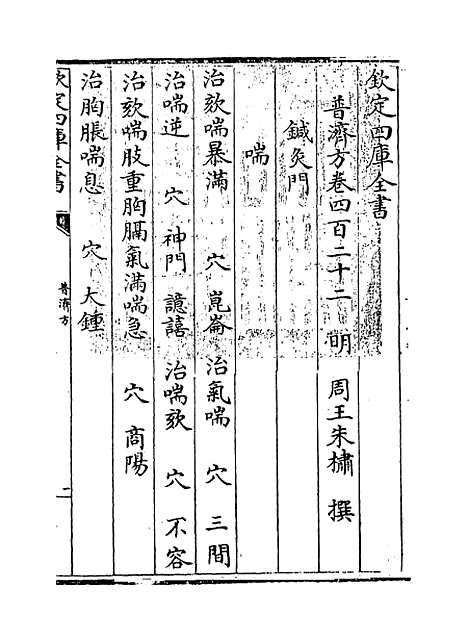 欽定四庫全書
普濟方卷四百二十二 明 周王朱橚 撰
鍼灸門
喘
治欬喘暴滿 穴 崑崙 治氣喘 穴 三間
治喘逆 穴 神門 譩譆 治喘欬 穴 不容
治欬喘肢重胸膈氣滿喘急 穴 商陽
治胸脹喘息 穴 大鍾
欽定四庫全書
普濟方
二